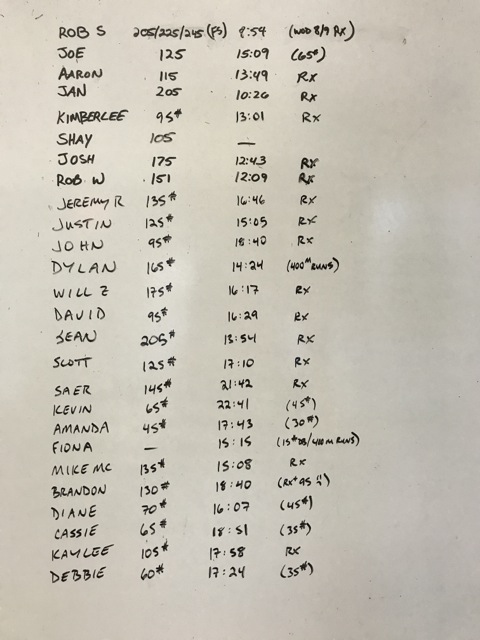 ROB S 205/225/245 (FS) 8:54 (WOD 8/9 Rx)
JOE 125 15:09 (65#)
AARON 115 13:49 Rx
JAN 205 10:26 Rx
KIMBERLEE 95# 13:01 Rx
SHAY 105 —
JOSH 175 12:43 Rx
ROB W 151 12:09 Rx
JEREMY R 135# 16:46 Rx
JUSTIN 125# 15:05 Rx
JOHN 95# 18:40 Rx
DYLAN 165# 14:24 (400M RUNS)
WILL Z 175# 16:17 Rx
DAVID 95# 16:29 Rx
SEAN 205# 13:54 Rx
SCOTT 125# 17:10 Rx
SAER 145# 21:42 Rx
KEVIN 65# 22:41 (45#)
AMANDA 45# 17:43 (30#)
FIONA — 15:15 (15# DB/400M RUNS)
MIKE MC 135# 15:08 Rx
BRANDON 130# 18:40 (Rx+ 95
DIANE 70# 16:07 (45#)
CASSIE 65# 18:51 (35#)
KAYLEE 105# 17:58 Rx
DEBBIE 60# 17:24 (35#)